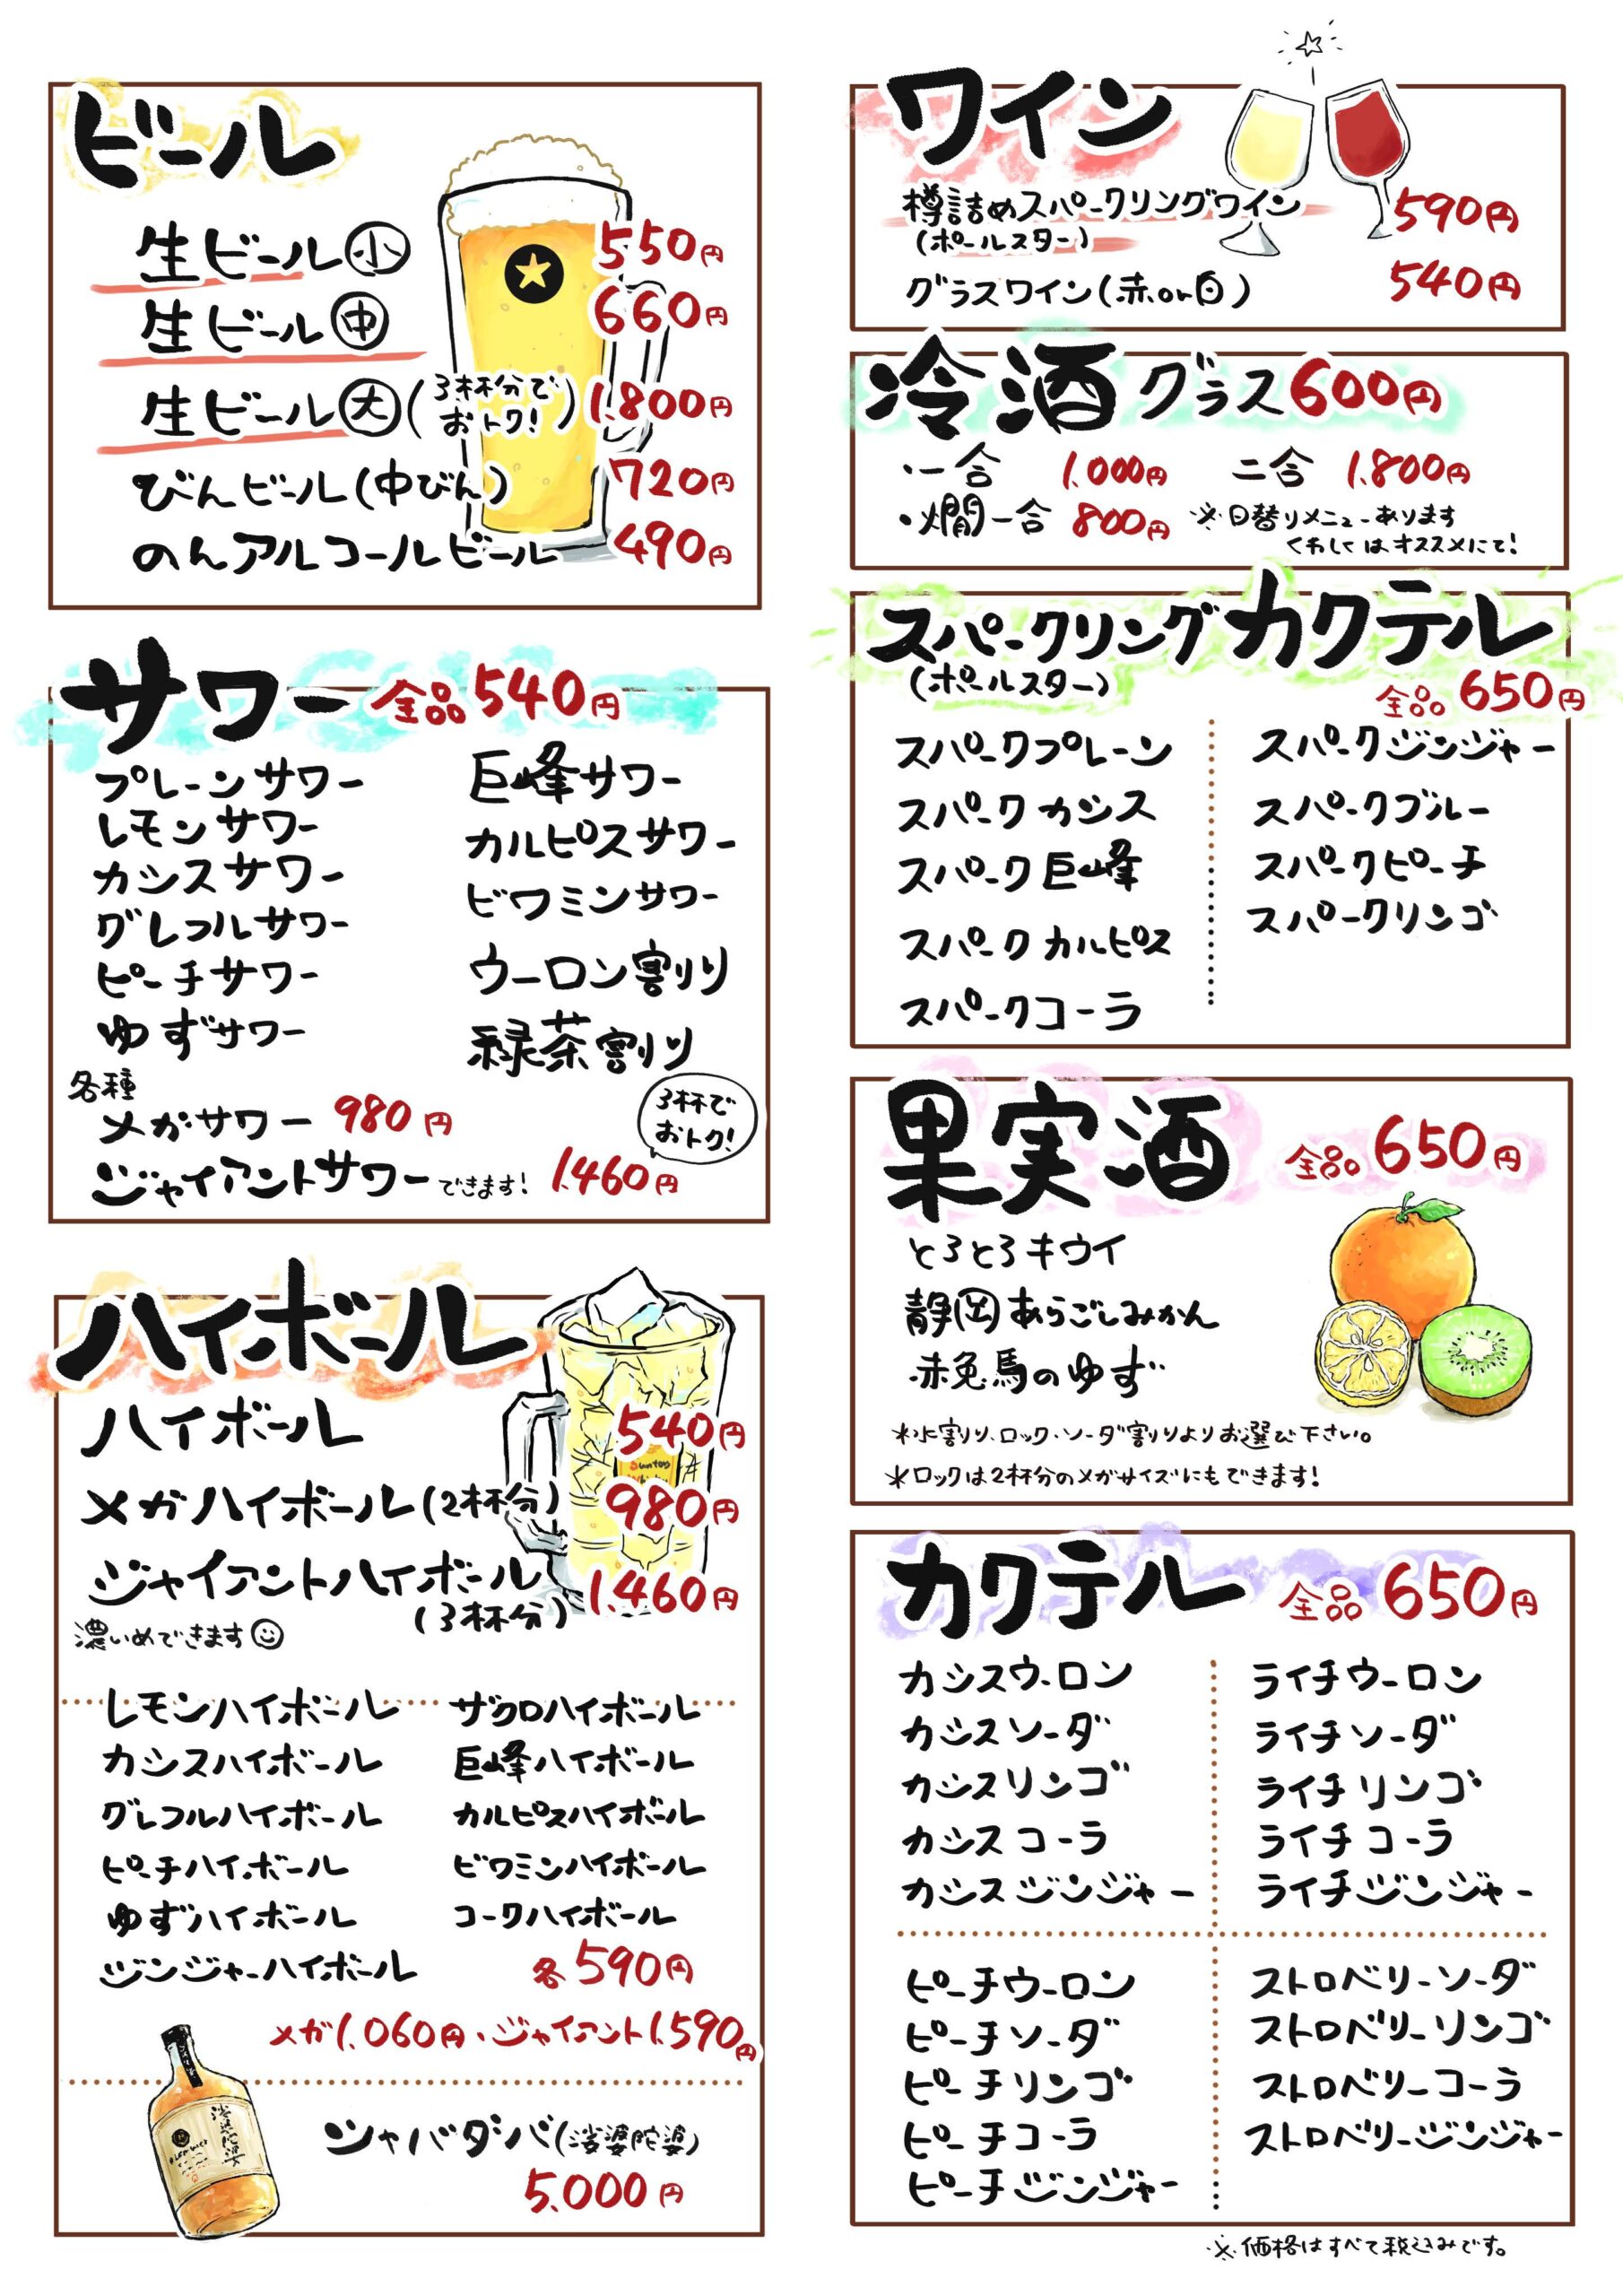 ビール
生ビール㊥小 550円
生ビール㊥ 660円
生ビール大(3杯分でおトク!) 1.800円
びんビール(中びん) 720円
のんアルコールビール 490円
サワー 全品540円
プレーンサワー
レモンサワー
カシスサワー
グレフルサワー
ピーチサワー
ゆずサワー
巨峰サワー
カルピスサワー
ビワミンサワー
ウーロン割り
緑茶割り
各種
メガサワー 980円
ジャイアントサワーできます! 1.460円
3杯で
おトク!
ハイボール
ハイボール 540円
メガハイボール(2杯分) 980円
ジャイアントハイボール 1.460円
(3杯分)
濃いめできます
レモンハイボール
カシスハイボール
グレフルハイボール
ピーチハイボール
ゆずハイボール
ジンジャーハイボール
ザクロハイボール
巨峰ハイボール
カルピスハイボール
ビワミンハイボール
コークハイボール
各590円
メガ1.060円・ジャイアント1.590円
シャバダバ(渋婆陀婆)
5.000円
ワイン
樽詰めスパークリングワイン 590円
(ポールスター)
グラスワイン(赤or白) 540円
冷酒 グラス600円
・一合 1.000円 二合 1.800円
・燗一合 800円 ※日替りメニューあります
くわしくはオススメにて!
スパークリングカクテル
(ポールスター) 全品650円
スパークプレーン
スパークカシス
スパーク巨峰
スパークカルピス
スパークコーラ
スパークジンジャー
スパークブルー
スパークピーチ
スパークリンゴ
果実酒 全品650円
とろとろキウイ
静岡あらごしみかん
赤兎馬のゆず
＊水割り、ロック・ソーダ割りよりお選び下さい。
＊ロックは2杯分のメガサイズにもできます!
カクテル 全品650円
カシスウーロン
カシスソーダ
カシスリンゴ
カシスコーラ
カシスジンジャー
ライチウーロン
ライチソーダ
ライチリンゴ
ライチコーラ
ライチジンジャー
ピーチウーロン
ピーチソーダ
ピーチリンゴ
ピーチコーラ
ピーチジンジャー
ストロベリーソーダ
ストロベリーリンゴ
ストロベリーコーラ
ストロベリージンジャー
※価格はすべて税込みです。